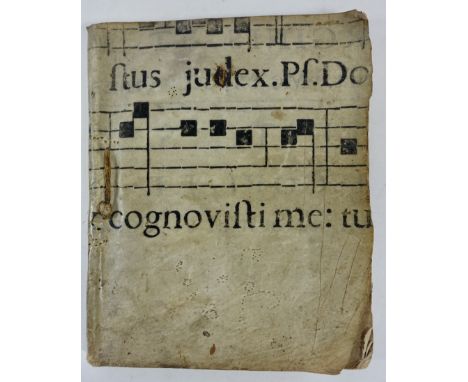 ſtus judex.Pſ.Do
cognoviſti me: tu